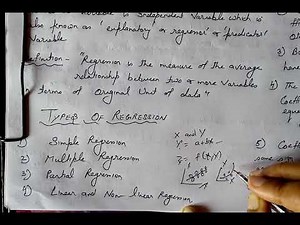 variable is Independent Variable which is
also known as 'explanatory or regressor' or 'predicator'
Variable
Definition - "Regression is the measure of the average
relationship between two or more Variables
in terms of Original Unit of data"
TYPES OF REGRESSION
1) Simple Regression
2) Multiple Regression
3) Partial Regression
4) Linear and Non linear Regression
X and Y
Y = a+bx
z = f(x,y)
3)
4)
5)